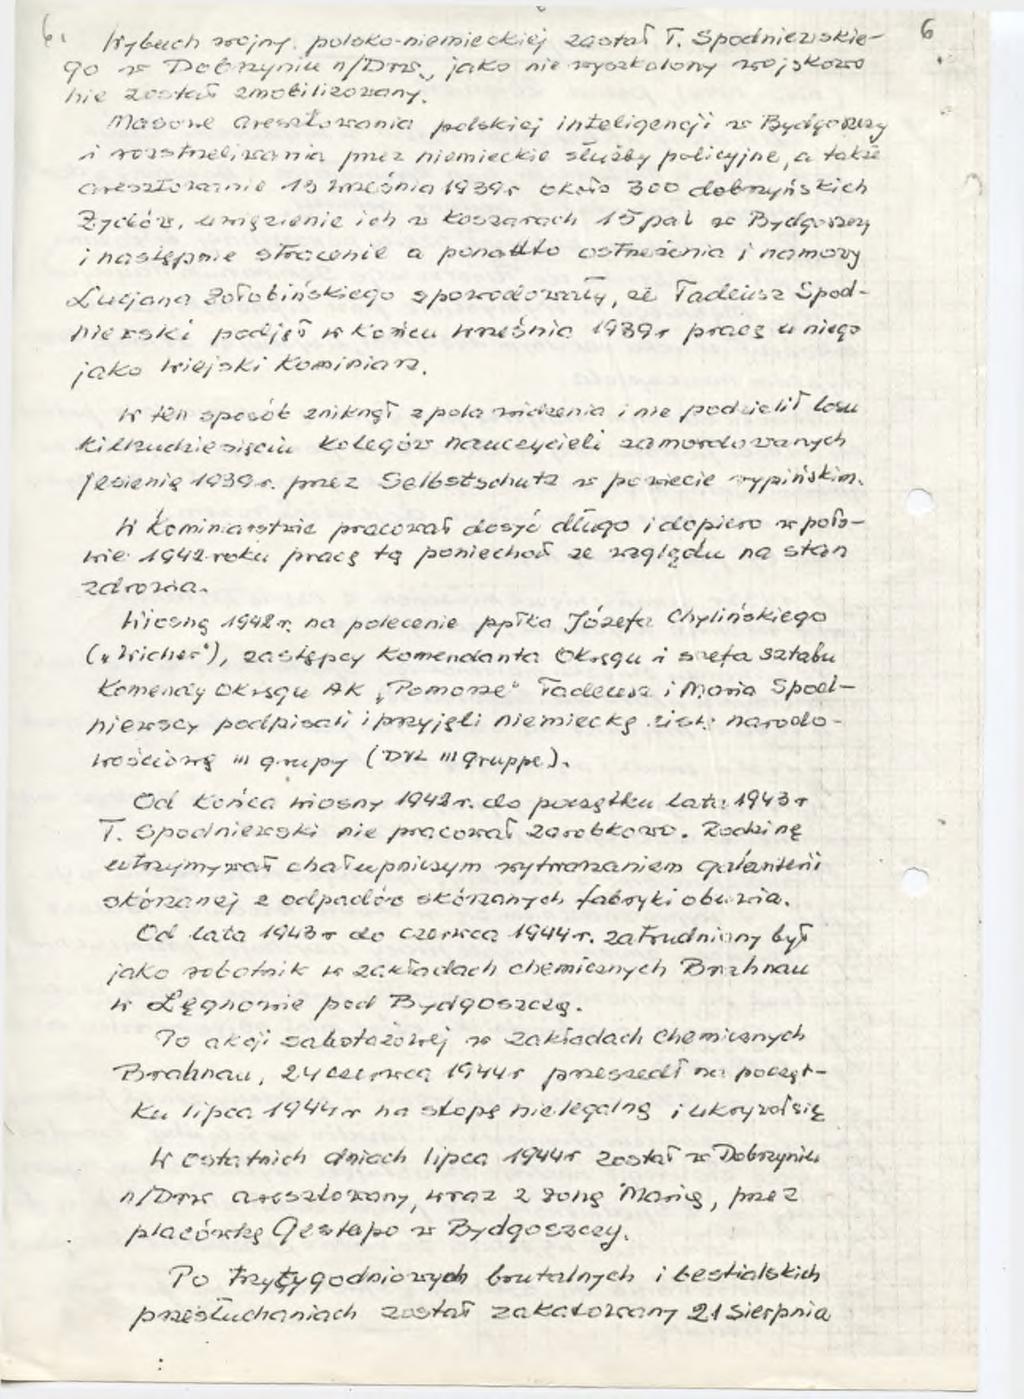 6. 6
Wybuch wojny polsko-niemieckiej zastał T. Spodniewskie-
go w Dobrzyniu n/Drw., jako nie wyszkolony wojskowo
nie został zmobilizowany.
Masowe aresztowania polskiej inteligencji w Bydgoszczy
i rozstrzeliwania przez niemieckie służby policyjne, a także
aresztowanie 15 września 1939 r około 300 dobrzyńskich
Żydów, uwięzienie ich w koszarach 15 pal w Bydgoszczy
i następnie stracenie a ponadto ostrzeżenia i namowy
Łucjana Żołobińskiego spowodowały, że Tadeusz Spod-
niewski podjął w końcu września 1939 r pracę u niego
jako wiejski kominiarz.
W ten sposób zniknął z pola widzenia i nie podzielił losu
kilkudziesięciu kolegów nauczycieli zamordowanych
jesienią 1939 r. przez Selbstschutz w powiecie rypińskim.
W kominiarstwie pracował dosyć długo i dopiero w poło-
wie 1942 roku pracę tą poniechał ze względu na stan
zdrowia.
Wiosną 1942 r. na polecenie ppłka Józefa Chylińskiego
(„Wicher"), zastępcy Komendanta Okręgu i szefa sztabu
Komendy Okręgu AK „Pomorze" Tadeusz i Maria Spod-
niewscy podpisali i przyjęli niemiecką listę narodo-
wościową III grupy (DVL III Gruppe).
Od końca wiosny 1942 r. do początku lata 1943 r
T. Spodniewski nie pracował zarobkowo. Rodzinę
utrzymywał chałupniczym wytwarzaniem galanterii
skórzanej z odpadów skórzanych fabryki obuwia.
Od lata 1943 r do czerwca 1944 r. zatrudniony był
jako robotnik w zakładach chemicznych Brahnau
w Łęgnowie pod Bydgoszczą.
Po akcji sabotażowej w zakładach chemicznych
Brahnau, 24 czerwca 1944 r przeszedł na począt-
ku lipca 1944 r na stopę nielegalną i ukrywał się
W ostatnich dniach lipca 1944 r został w Dobrzyniu
n/Drw aresztowany, wraz z żoną Marią, przez
placówkę Gestapo w Bydgoszczy.
Po trzytygodniowych brutalnych i bestialskich
przesłuchaniach został zakatowany 21 sierpnia